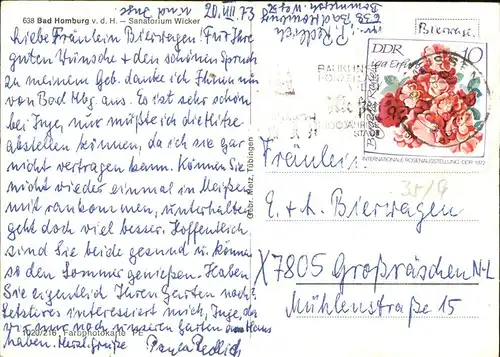 638 Bad Homburg v. d. H. – Sanatorium Wicker
20. VIII 73
Liebe Fräulein Bierwagen! Für Ihre
guten Wünsche & den schönen Spruch
zu meinem Geb. danke ich Ihnen nun
von Bad Mbg. aus. Es ist sehr schön
bei Inge, nur müßte ich die Hitze
abstellen können, da ich sie gar
nicht vertragen kann. Können Sie
nicht wieder einmal in Meißen
mit rankommen, unterhalten
geht doch viel besser. Hoffentlich
sind Sie beide gesund u. können
so den Sommer genießen. Haben
Sie eigentlich Ihren Garten noch?
Letzteres interessiert mich, Inge, da
wir noch unseren Garten am Haus
haben. Herzl. Grüße Paula Redlich
1020/216 Farbphotokarte PE
Gebr. Metz, Tübingen
Redlich
638 Bad Homburg
Bierwag.
DDR 10
aa Erfurt
INTERNATIONALE ROSENAUSSTELLUNG DDR 1972
35/9
Fräulein
E. & A. Bierwagen
X 7805 Großräschen N-L
Mühlenstraße 15